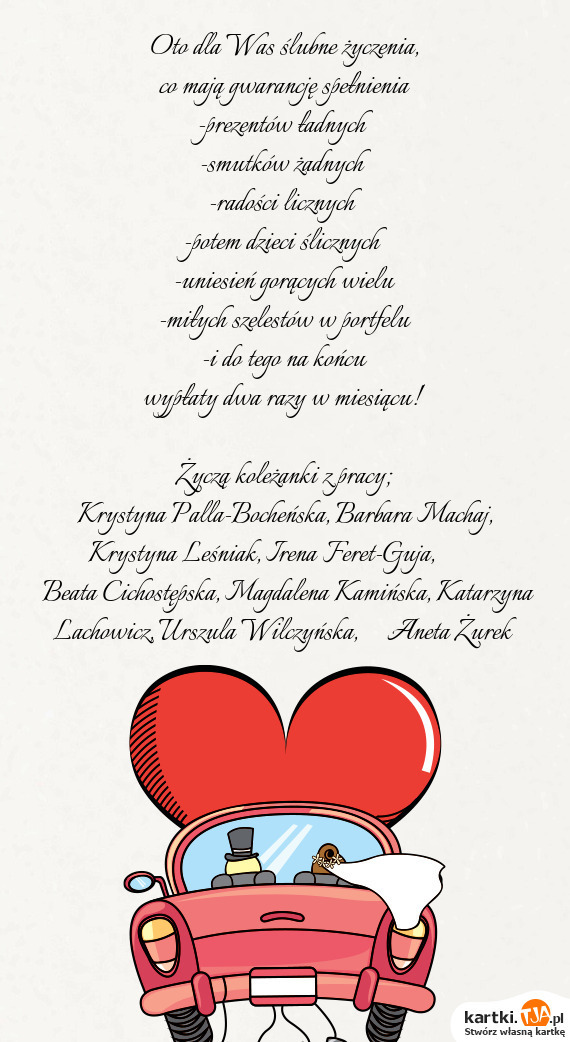 Oto dla Was ślubne życzenia,
co mają gwarancję spełnienia
-prezentów ładnych
-smutków żadnych
-radości licznych
-potem dzieci ślicznych
-uniesień gorących wielu
-miłych szelestów w portfelu
-i do tego na końcu
wypłaty dwa razy w miesiącu!
Życzą koleżanki z pracy;
Krystyna Palla-Bocheńska, Barbara Machaj,
Krystyna Leśniak, Irena Feret-Guja,
Beata Cichostępska, Magdalena Kamińska, Katarzyna
Lachowicz, Urszula Wilczyńska, Aneta Żurek
kartki.TJA.pl
Stwórz własną kartkę